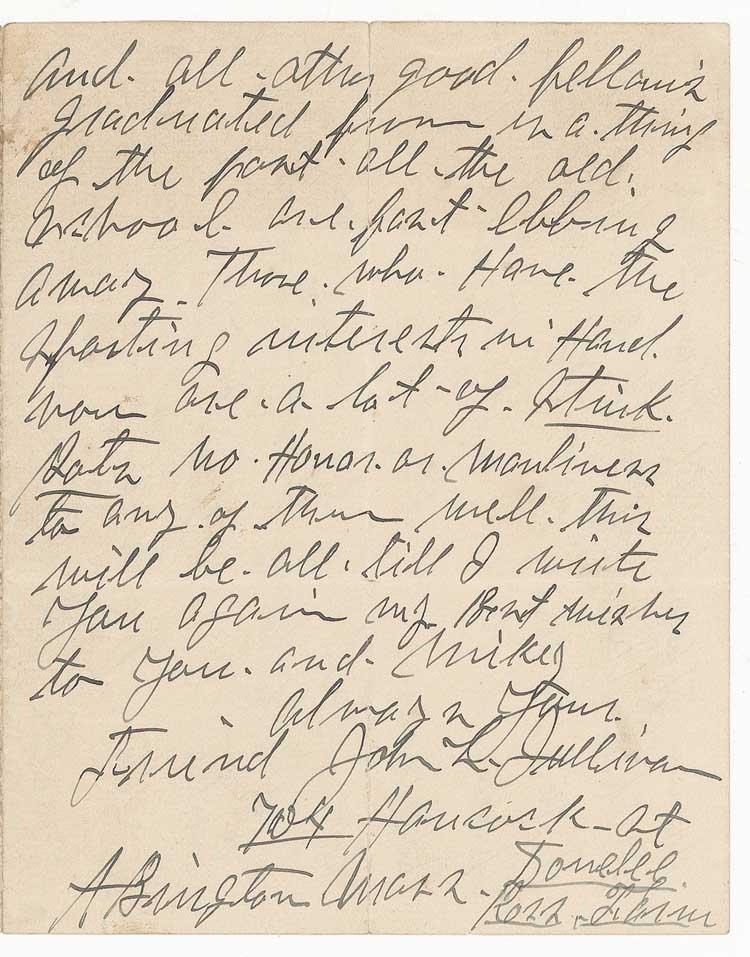 And. all-other good. fellows
graduated from is a. thing
of the past-all-the old.
school. are. fast-ebbing
away. Those. who. Have. the
Sporting interests in Hand.
now are. a. lot-of. Stink.
Pots no. Honor. or. manliness
to any. of. them well. this
will be. all. till I write
You again my Best wishes
to You. and. Mikey
always Your.
Friend John L. Sullivan
704 Hancock-st
Abington Mass-
Ross. Farm